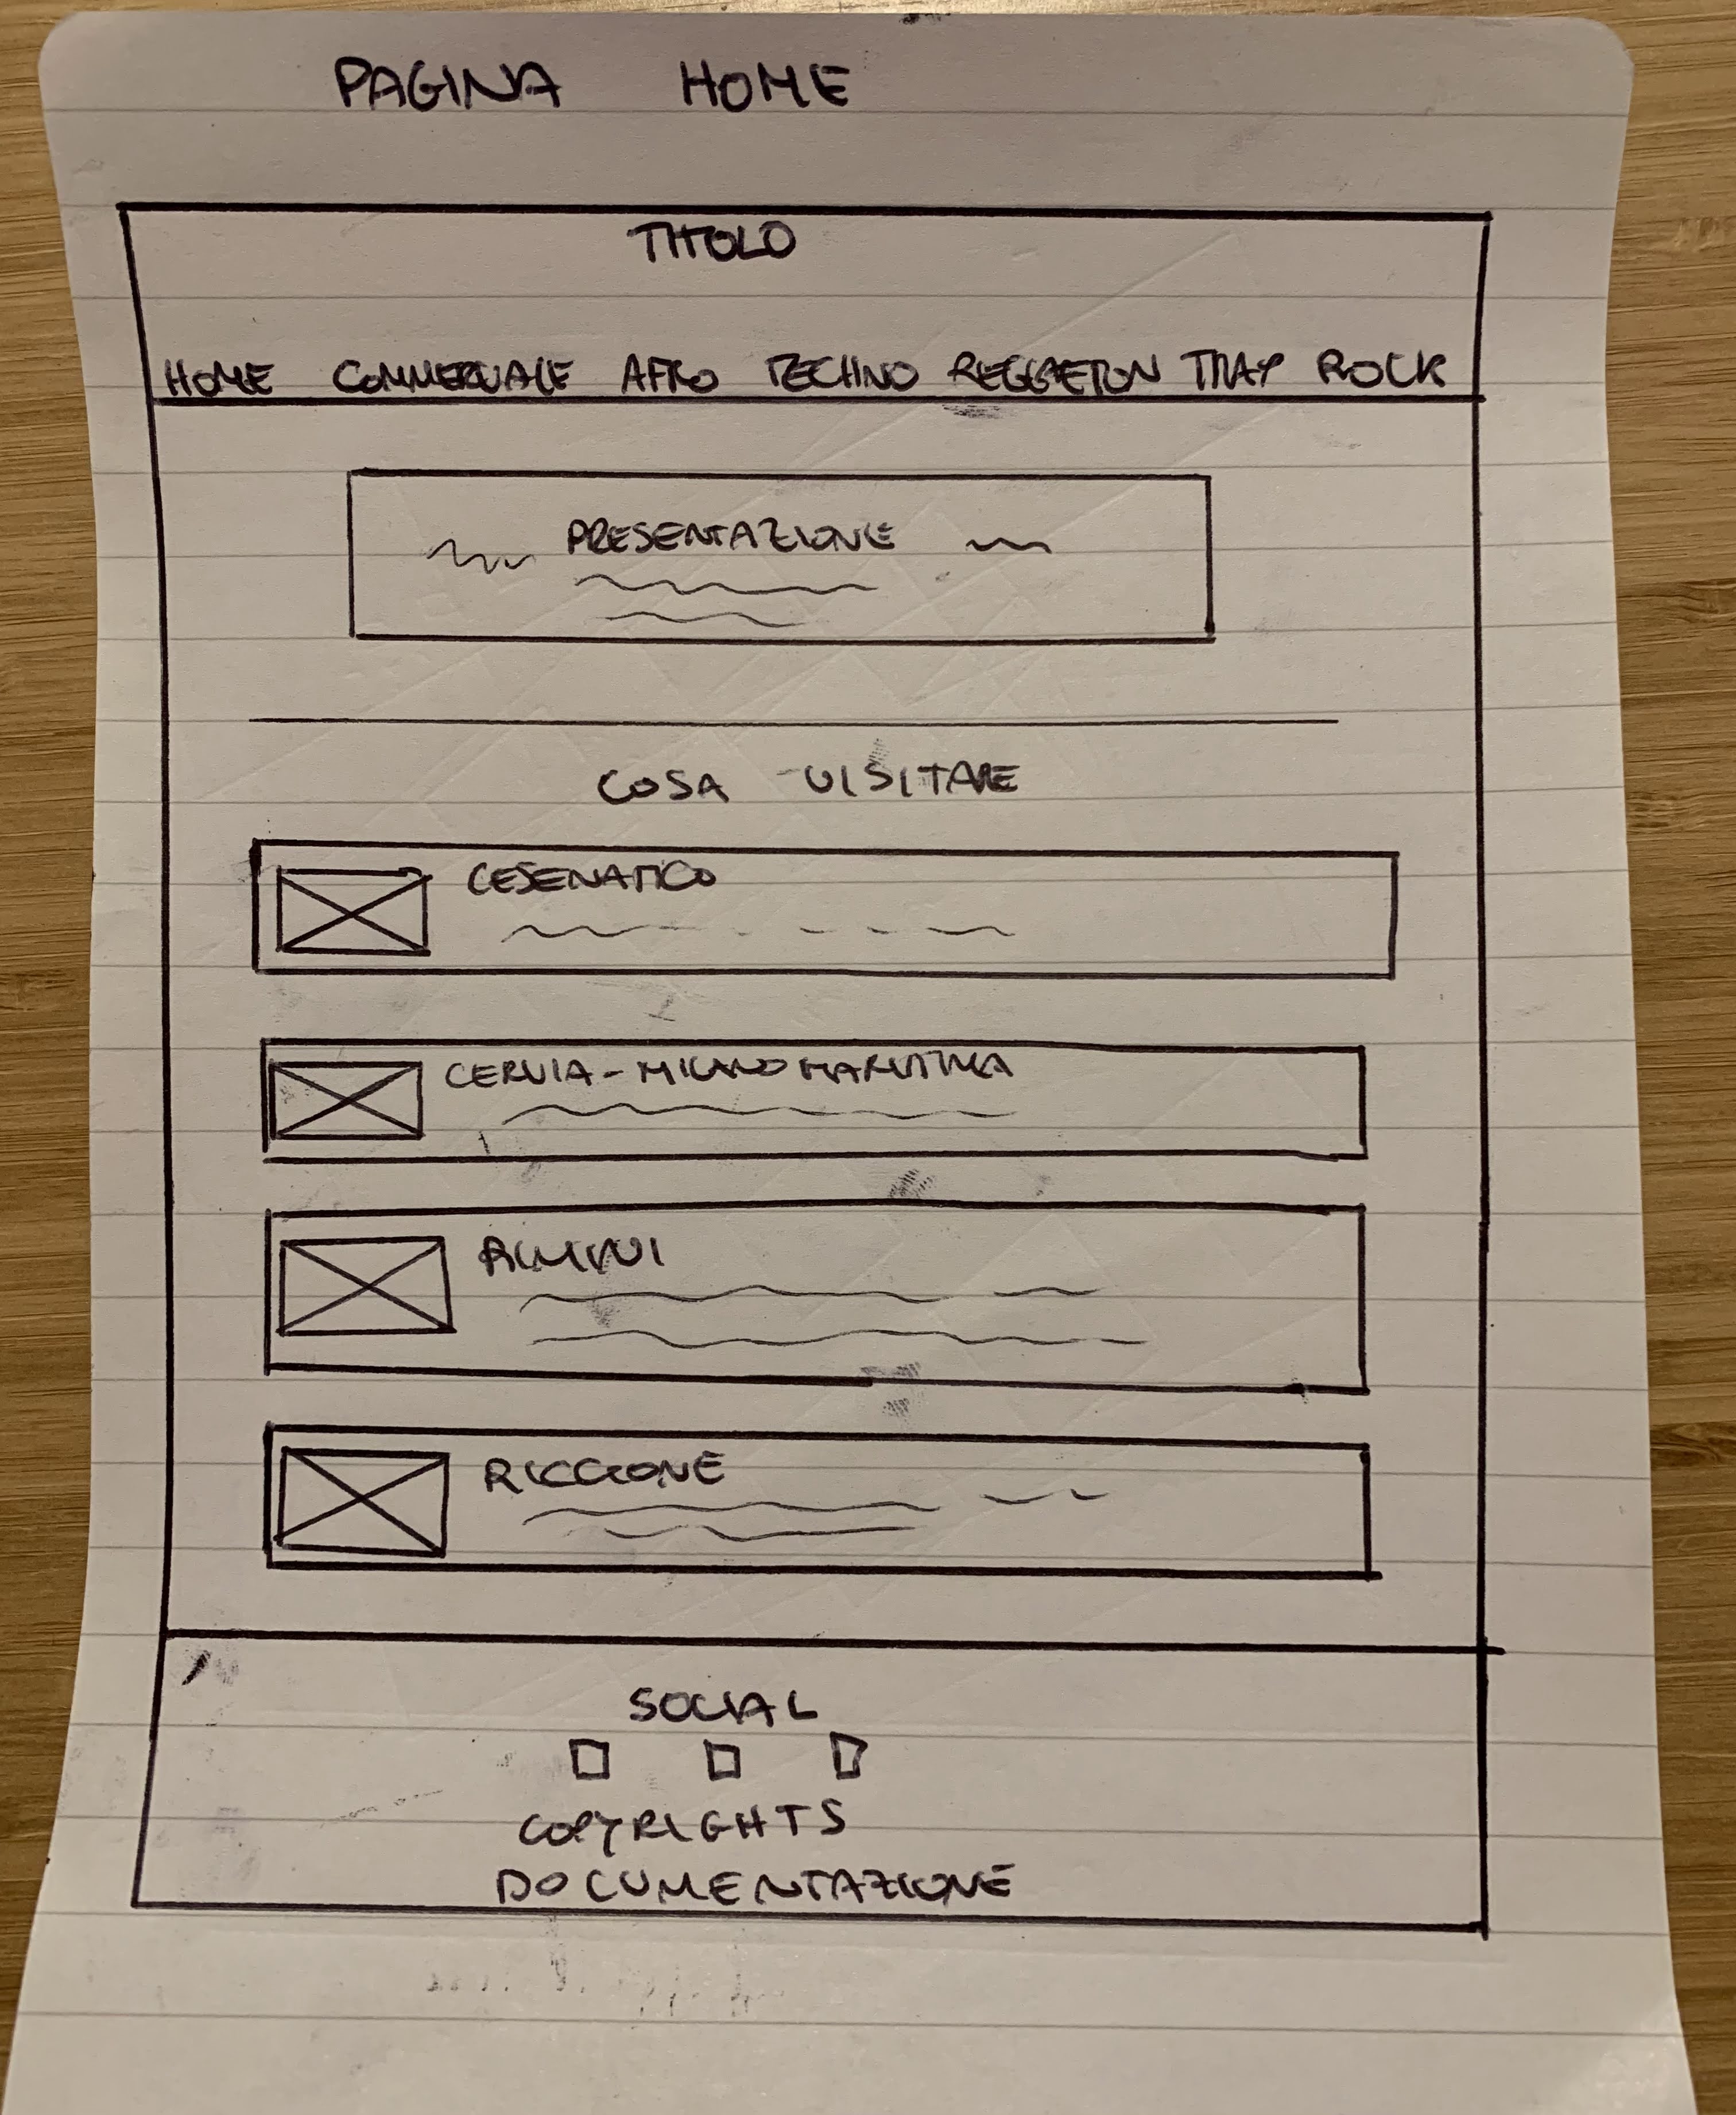 PAGINA HOME
TITOLO
HOME COMMERCIALE AFRO TECHNO REGGAETON TRAP ROCK
PRESENTAZIONE
COSA VISITARE
CESENATICO
CERVIA - MILANO MARITTIMA
RIMINI
RICCIONE
SOCIAL
COPYRIGHTS
DOCUMENTAZIONE